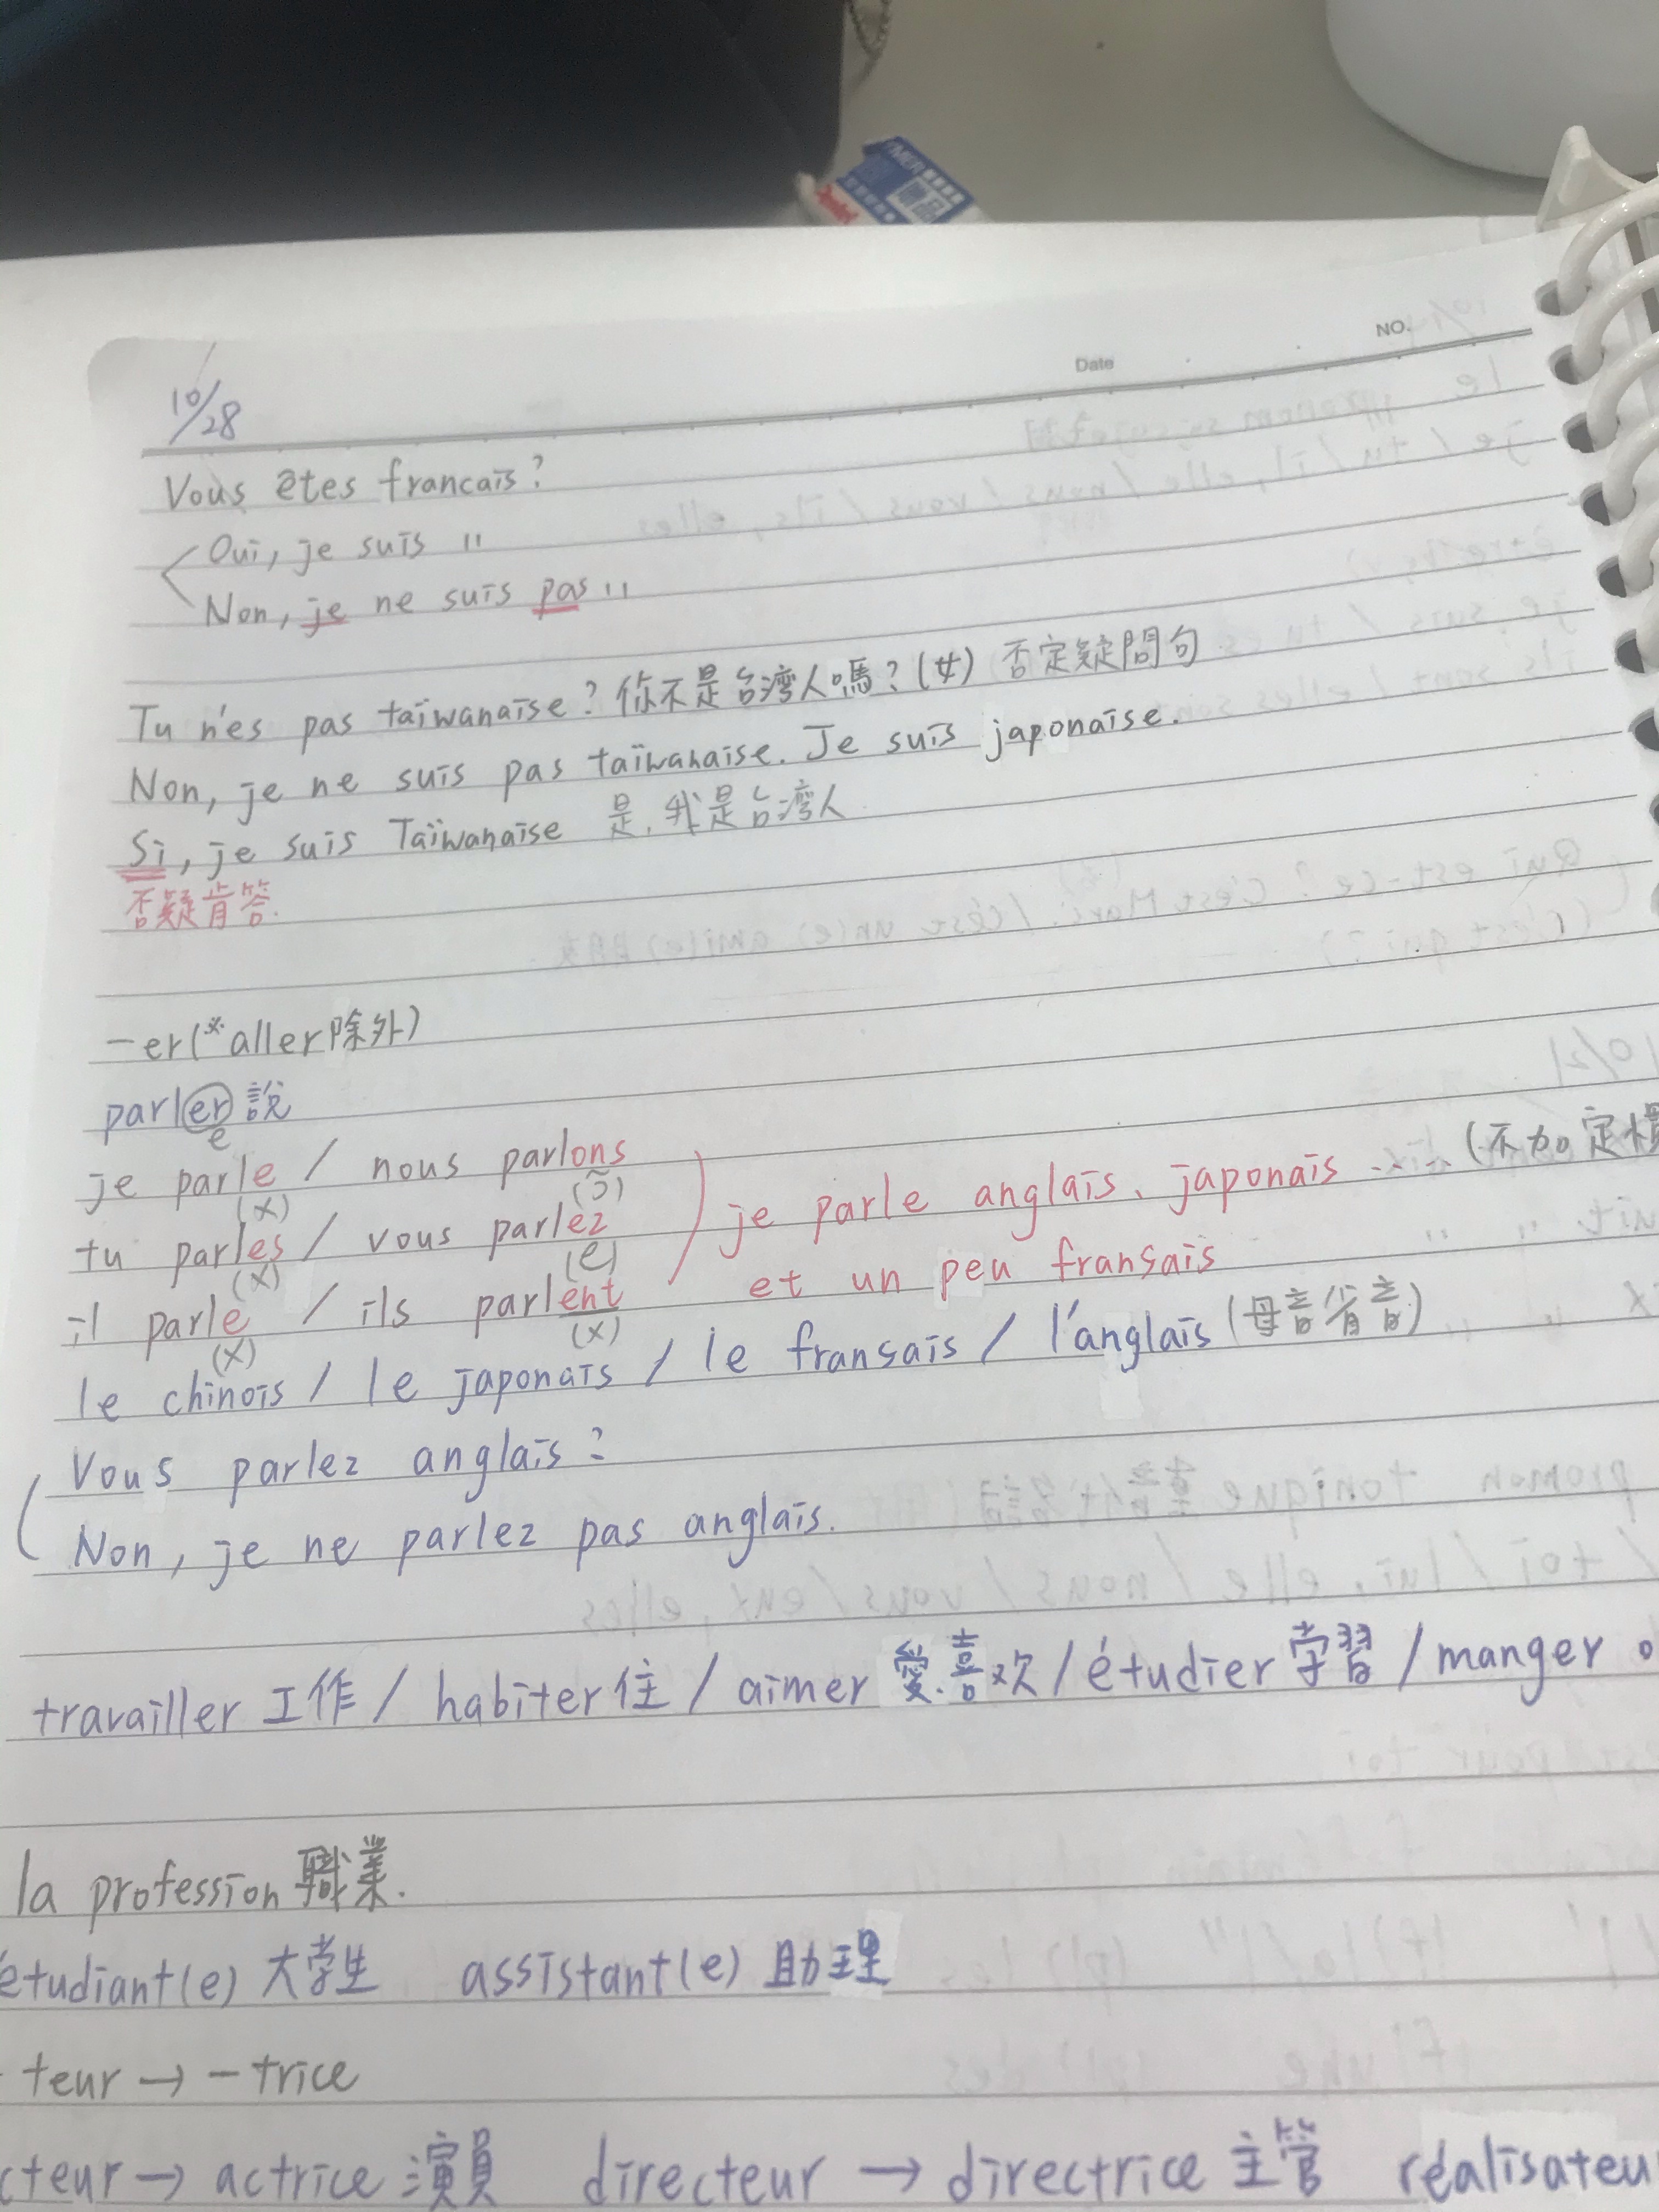 NO.
Date
10/28
Vous êtes francais?
Oui, je suis 〃
Non, je ne suis pas 〃
Tu n'es pas taïwanaise? 你不是台灣人嗎?(女) 否定疑問句
Non, je ne suis pas taïwanaise. Je suis japonaise.
Si, je suis Taïwanaise 是, 我是台灣人
否疑肯答.
-er(※aller除外)
parler 說
e
je parle / nous parlons
(x) (ɔ̃)
tu parles / vous parlez
(x) (e)
il parle / ils parlent
(x) (x)
je parle anglais、japonais ..... (不加定慣
et un peu fransais
le chinois / le japonais / le fransais / l'anglais (母音省音)
Vous parlez anglais?
Non, je ne parlez pas anglais.
travailler 工作 / habiter 住 / aimer 愛.喜欢 / étudier 学習 / manger
la profession 職業.
étudiant(e) 大学生 assistant(e) 助理
teur → -trice
cteur → actrice 演員 directeur → directrice 主管 réalisateu